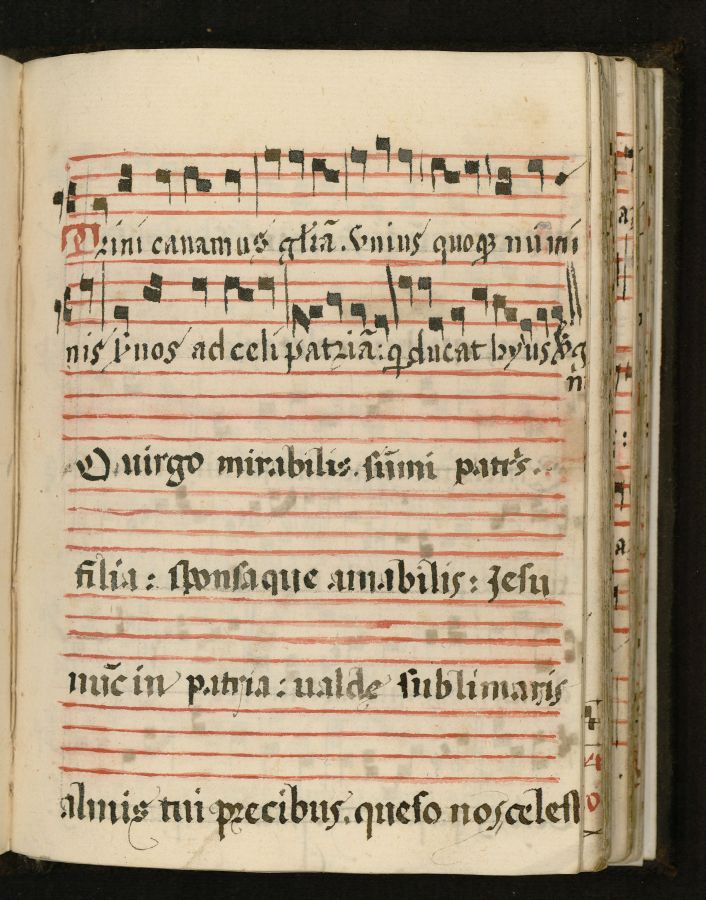 Trini canamus gl̄iā. Vnius quoqꝫ nūmi
nis v̄nos ad celi patriā: q̄ ducat hyiusꝫ
O uirgo mirabilis. sūmi patr̄s.
filia: sponsa que amabilis: Jesu
nūc in patria: ualde sublimaris
almis tui precibus. queso nos celest
a
a
4
0